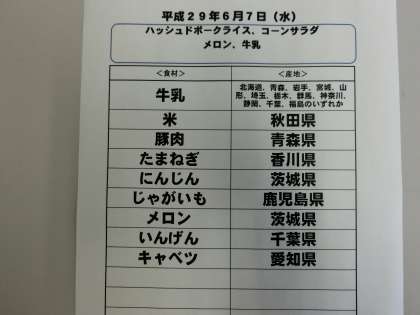 平成29年6月7日（水）
ハッシュドポークライス、コーンサラダ
メロン、牛乳
＜食材＞ ＜産地＞
牛乳 北海道、青森、岩手、宮城、山
形、埼玉、栃木、群馬、神奈川、
静岡、千葉、福島のいずれか
米 秋田県
豚肉 青森県
たまねぎ 香川県
にんじん 茨城県
じゃがいも 鹿児島県
メロン 茨城県
いんげん 千葉県
キャベツ 愛知県